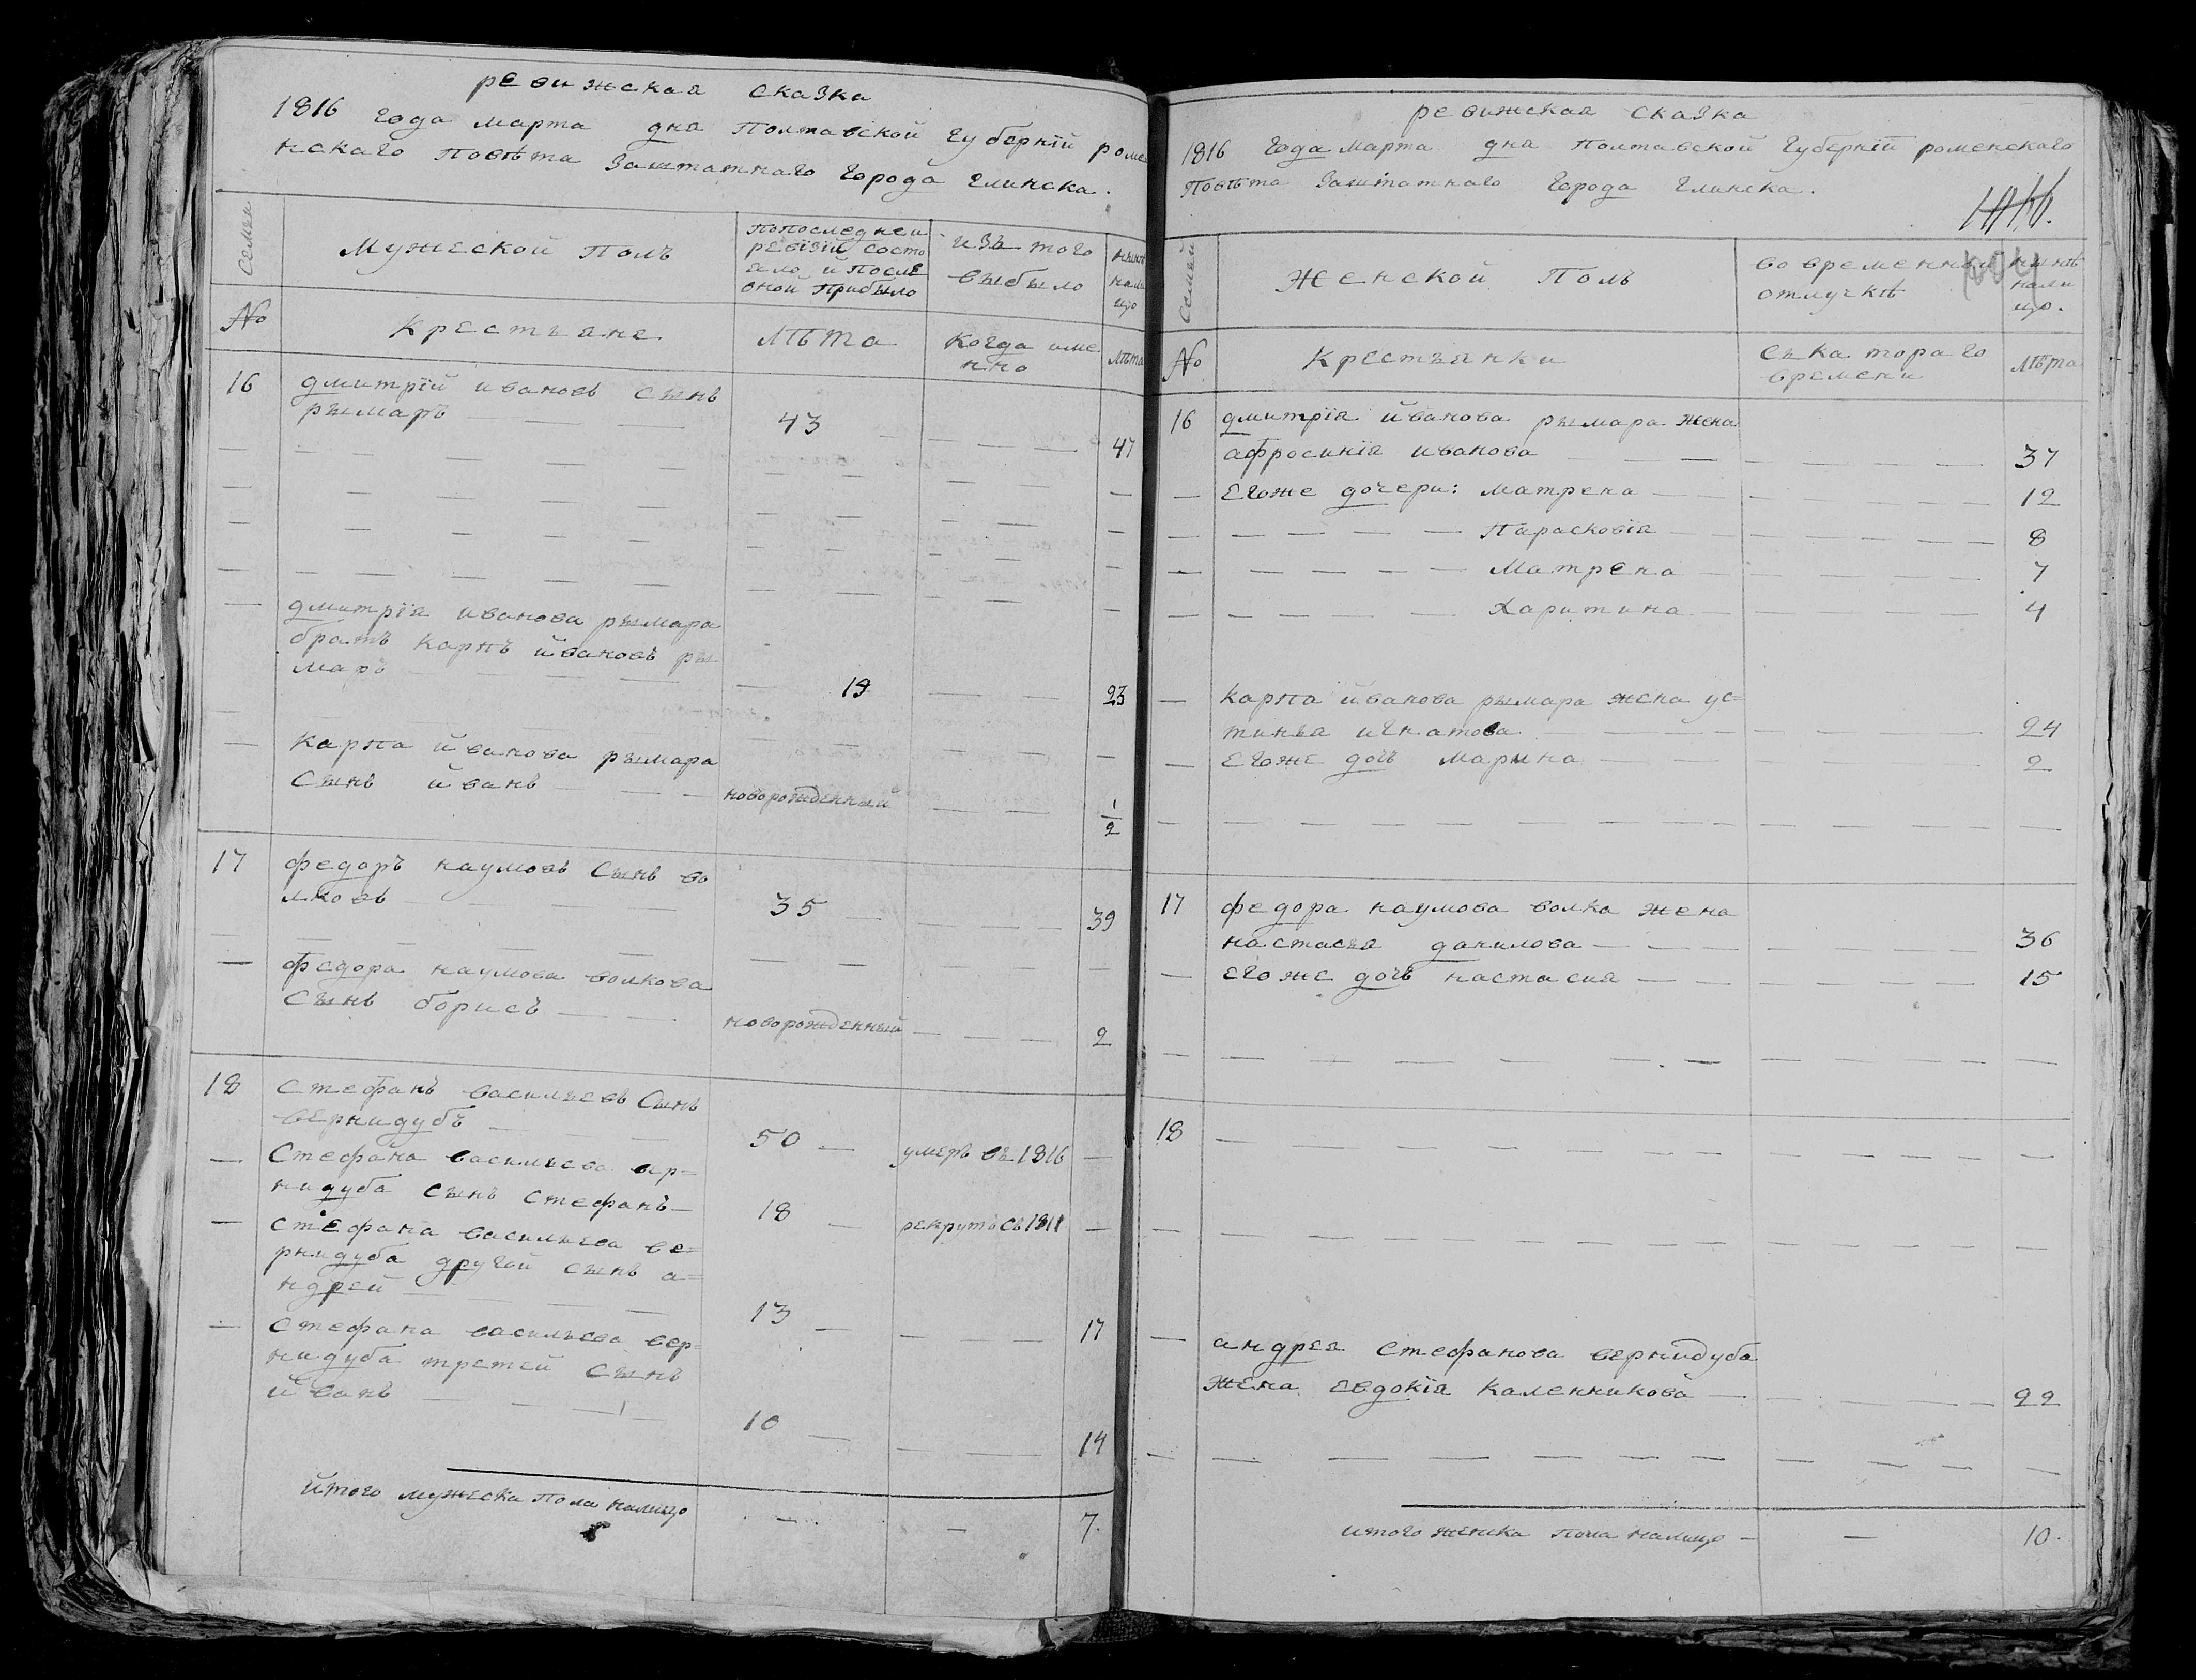 ревижская сказка
1816 года марта дня Полтавской губернїй роме
нскаго повѣта Заштатнаго города глинска.
Семьи
Мужеской Полъ
попоследней
ревїзїй состо
яло и после
оной прибыло
изъ того
выбыло
нынѣ
нали
цо
№
Крестьяне
Лѣта
Когда име
нно
Лѣта
16
дмитрїй ивановъ сынъ
рымаръ
43
47
дмитрїя иванова рымара
братъ карпъ йвановъ ры
маръ
19
23
карпа йванова рымара
сынъ йванъ
новорожденный
1/2
17
федоръ наумовъ сынъ во
лковъ
35
39
федора наумова волкова
сынъ борисъ
новорожденный
2
18
стефанъ васильевъ сынъ
вернидубъ
50
умеръ въ 1816
Стефана васильева вер-
нидуба сынъ стефанъ
18
рекрутъ съ 1811
стефана васильева ве=
рнидуба другой сынъ а=
ндрей
13
17
стефана васильева вер=
нидуба третей сынъ
йванъ
10
14
йтого мужеска пола налицо
7.
ревижская сказка
1816 года марта дня полтавской губернїй роменскаго
повѣта заштатнаго города глинска.
Семьи
Женской Полъ
во временной
отлучкѣ
нынѣ
нали
цо.
№
Крестьянки
съ котораго
времени
Лѣта
16
дмитрїя йванова рымара жена
афросинїя иванова
37
егоже дочери: матрена
12
Парасковїя
8
Матрена
7
Харитина
4
карпа йванова рымара жена ус=
тинья игнатова
24
егоже дочь марина
2
17
федора наумова волка жена
настасья данилова
36
егоже дочь настасия
15
18
андрея стефанова вернидуба
жена евдокїя каленникова
22
итого женска пола налицо
10.